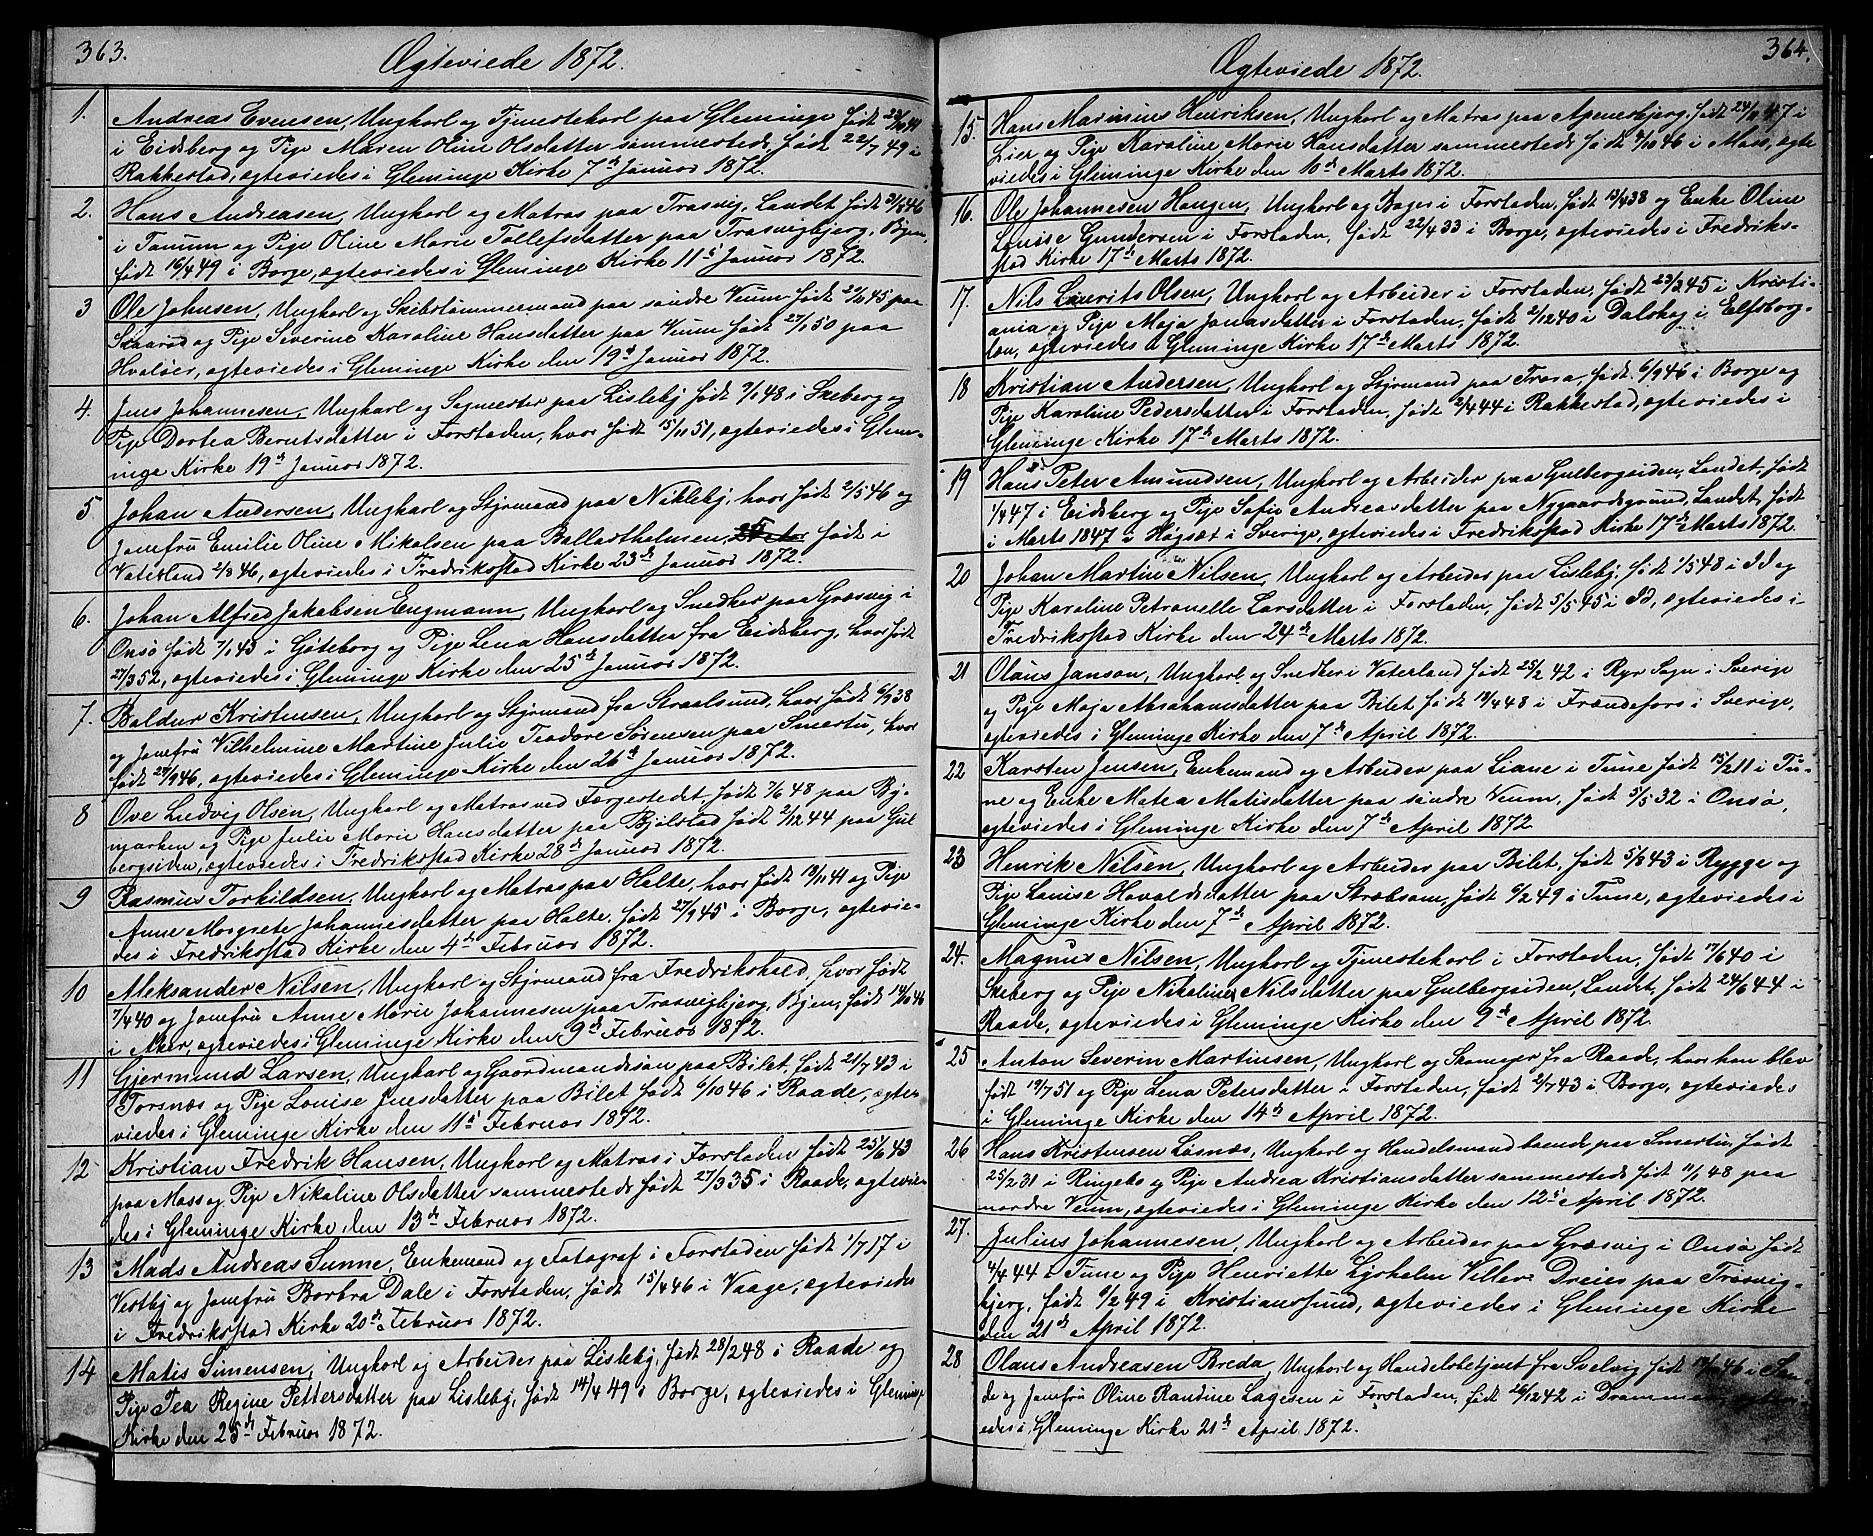 363.
Ægteviede 1872.
1. Andreas Evensen, Ungkarl og Tjenestekarl paa Gleminge født
i Eidsberg og Pige Maren Oline Olsdatter sammesteds, født 22/7 49 i
Rakkestad, ægteviedes i Gleminge Kirke 7de Januar 1872.
2. Hans Andreasen, Ungkarl og Matros paa Trasvig, Landet født
i Tanum og Pige Oline Marie Tollefsdatter paa Trasvigbjerg, Bjen,
født 16/4 49 i Borge, ægteviedes i Gleminge Kirke 11te Januar 1872.
3 Ole Johnsen, Ungkarl og Skibstømmermand paa søndre Veum født 2/1 45 paa
Skaarød og Pige Severine Karoline Hansdatter paa Veum født 27/1 50 paa
Hvaløer, ægteviedes i Gleminge Kirke den 19de Januar 1872.
4. Jens Johannesen, Ungkarl og Sagmester paa Lisleby født 9/1 48 i Skeberg og
Pige Dortea Berntsdatter i Forstaden, hvor født 15/11 51, ægteviedes i Glem-
inge Kirke 19de Januar 1872.
5 Johan Andersen, Ungkarl og Styrmand paa Nikleby, hvor født 2/5 46 og
Jomfru Emilie Oline Mikalsen paa Ballastholmen, født i
Vaterland 2/8 46, ægteviedes i Fredriksstad Kirke 23de Januar 1872.
6. Johan Alfred Jakobsen Engmann, Ungkarl og Snedker paa Græsvig i
Onsø født 7/1 43 i Göteborg og Pige Lena Hansdatter fra Eidsberg, hvor født
27/3 52, ægteviedes i Gleminge Kirke den 25de Januar 1872.
7. Baldur Kristensen, Ungkarl og Styrmand fra Straalsund, hvor født 6/9 38
og Jomfru Vilhelmine Martine Julie Teodore Sørensen paa Smertu, hvor
født 29/9 46, ægteviedes i Gleminge Kirke den 26de Januar 1872.
8 Ove Ludvig Olsen, Ungkarl og Matros ved Færgestedet, født 7/6 48 paa Bj-
marken og Pige Julie Marie Hansdatter paa Bjølstad født 2/12 44 paa Gul
bergsiden, ægteviedes i Fredriksstad Kirke 28de Januar 1872.
9 Rasmus Torkildsen, Ungkarl og Matros paa Halte, hvor født 19/11 41 og Pige
Anne Margrete Johannesdatter paa Halte, født 27/9 45 i Borge, ægtevie-
des i Fredriksstad Kirke den 4de Februar 1872.
10 Aleksander Nilsen, Ungkarl og Styrmand fra Fredrikshald, hvor født
7/4 40 og Jomfru Anne Marie Johannesen paa Trasvigbjerg, Bjen, født 14/10 46
i Aker, ægteviedes i Gleminge Kirke den 9de Februar 1872.
11 Gjermund Larsen, Ungkarl og Gaardmandssøn paa Bilet, født 21/7 43 i
Torsnæs og Pige Louise Jensdatter paa Bilet født 6/10 46 i Raade, ægte-
viedes i Gleminge Kirke den 11te Februar 1872.
12 Kristian Fredrik Hansen, Ungkarl og Matros i Forstaden født 25/6 43
paa Moss og Pige Nikoline Olsdatter sammesteds født 27/3 35 i Raade, ægtevie-
des i Gleminge Kirke den 13de Februar 1872.
13 Mads Andreas Sunne, Enkemand og Fotograf i Forstaden født 1/7 17 i
Vestby og Jomfru Barbra Dale i Forstaden, født 15/4 46 i Vaage, ægteviedes
i Fredriksstad Kirke 20de Februar 1872.
14 Matis Simensen, Ungkarl og Arbeider paa Lisleby, født 28/2 48 i Raade og
Pige Tea Regine Pettersdatter paa Lisleby, født 14/4 49 i Borge, ægteviedes i Gleminge
Kirke den 25de Februar 1872.
364.
Ægteviede 1872.
15. Hans Marinius Henriksen, Ungkarl og Matros paa Apenesbjerg, født i
Lier og Pige Karoline Marie Hansdatter sammesteds født 4/10 46 i Moss, ægte
viedes i Gleminge Kirke den 10de Marts 1872.
16. Ole Johannesen Haugen, Ungkarl og Bager i Forstaden, født 13/4 38 og Enke Oline
Louise Gundersen i Forstaden, født 22/4 33 i Borge, ægteviedes i Fredriks-
stad Kirke 17de Marts 1872.
17. Nils Laurits Olsen, Ungkarl og Arbeider i Forstaden, født 23/2 45 i Kristi-
ania og Pige Maja Jonasdatter i Forstaden, født 2/12 40 i Dalskog i Elfsborg-
len, ægteviedes i Gleminge Kirke 17de Marts 1872.
18 Kristian Andersen, Ungkarl og Styrmand paa Trara, født 6/9 46 i Borge og
Pige Karoline Pedersdatter i Forstaden, født 2/4 44 i Rakkestad, ægteviedes i
Gleminge Kirke 17de Marts 1872.
19 Hans Peter Amundsen, Ungkarl og Arbeider paa Gulbergsiden, Landet, født
1/4 47 i Eidsberg og Pige Sofie Andreasdatter paa Nygaardsgrund, Landet, født
i Marts 1847 i Høgsæt i Sverige, ægteviedes i Fredrikstad Kirke 17de Marts 1872.
20 Johan Martin Nilsen, Ungkarl og Arbeider paa Lisleby, født 1/5 48 i Id og
Pige Karoline Petronelle Larsdatter i Forstaden, født 5/5 45 i Id, ægteviedes i
Fredriksstad Kirke den 24de Marts 1872.
21 Olaus Janson, Ungkarl og Snedker i Vaterland født 25/2 42 i Ryr Sogn i Sverige
og Pige Maja Abrahamsdatter paa Bilet født 19/4 48 i Frændefors i Sverige,
ægteviedes i Gleminge Kirke den 7de April 1872.
22 Karsten Jensen, Enkemand og Arbeider paa Liane i Tune født 15/2 11 i Tu-
ne og Enke Matea Matisdatter paa søndre Veum, født 5/5 32 i Onsø,
ægteviedes i Gleminge Kirke den 7de April 1872
23 Henrik Nilsen, Ungkarl og Arbeider paa Bilet, født 5/8 43 i Rygge og
Pige Louise Havaldsdatter paa Stræbsom, født 9/2 49 i Tune, ægteviedes i
Gleminge Kirke den 7de April 1872.
24. Magnus Nilsen, Ungkarl og Tjenestekarl i Forstaden, født 17/6 40 i
Skeberg og Pige Nikoline Nilsdatter paa Gulbergsiden, Landet, født 24/6 44 i
Raade, ægteviedes i Gleminge Kirke den 9de April 1872.
25 Anton Severin Martinsen, Ungkarl og Skomager fra Raade, hvor han blev
født 19/7 51 og Pige Lena Petersdatter i Forstaden, født 2/7 43 i Borge, ægteviedes
i Gleminge Kirke den 14de April 1872.
26 Hans Kristensen Løsnæs, Ungkarl og Handelsmand boende paa Smertu, født
25/2 31 i Ringebo og Pige Andrea Kristiansdatter sammesteds født 11/1 48 paa
nordre Veum, ægteviedes i Gleminge Kirke den 12te April 1872.
27. Julius Johannesen, Ungkarl og Arbeider paa Græsvig i Onsø født
4/4 44 i Tune og Pige Henriette Lyrholm Viller Dreier paa Trosvig-
bjerg, født 9/2 49 i Kristianssund, ægteviedes i Gleminge Kirke
den 21de April 1872.
28 Olaus Andreasen Breda, Ungkarl og Handelsbetjent fra Svelvig født i San-
de og Jomfru Oline Randine Lagesen i Forstaden, født 26/12 42 i Drammen
edes i Gleminge Kirke 21de April 1872.